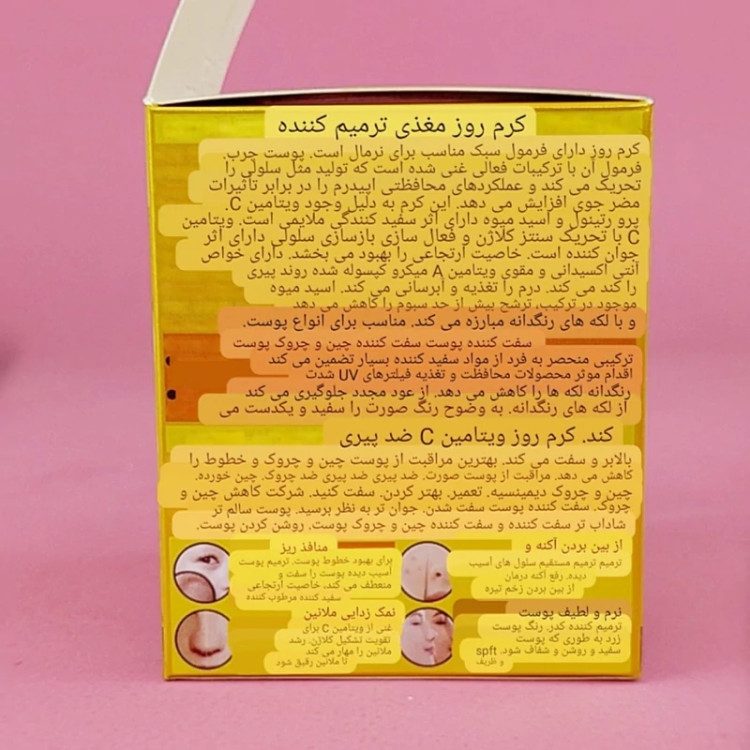 کرم روز مغذی ترمیم کننده
کرم روز دارای فرمول سبک مناسب برای نرمال است. پوست چرب.
فرمول آن با ترکیبات فعالی غنی شده است که تولید مثل سلولی را
تحریک می کند و عملکردهای محافظتی اپیدرم را در برابر تأثیرات
مضر جوی افزایش می دهد. این کرم به دلیل وجود ویتامین C.
پرو رتینول و اسید میوه دارای اثر سفید کنندگی ملایمی است. ویتامین
C با تحریک سنتز کلاژن و فعال سازی بازسازی سلولی دارای اثر
جوان کننده است. خاصیت ارتجاعی را بهبود می بخشد. دارای خواص
آنتی اکسیدانی و مقوی ویتامین A میکرو کپسوله شده روند پیری
را کند می کند. درم را تغذیه و آبرسانی می کند. اسید میوه
موجود در ترکیب، ترشح بیش از حد سبوم را کاهش می دهد
و با لکه های رنگدانه مبارزه می کند. مناسب برای انواع پوست.
سفت کننده پوست سفت کننده چین و چروک پوست
ترکیبی منحصر به فرد از مواد سفید کننده بسیار تضمین می کند
اقدام موثر محصولات محافظت و تغذیه فیلترهای UV شدت
رنگدانه لکه ها را کاهش می دهد. از عود مجدد جلوگیری می کند
از لکه های رنگدانه. به وضوح رنگ صورت را سفید و یکدست می
کند. کرم روز ویتامین C ضد پیری
بالابر و سفت می کند. بهترین مراقبت از پوست چین و چروک و خطوط را
کاهش می دهد. مراقبت از پوست صورت. ضد پیری ضد پیری ضد چروک. چین خورده.
چین و چروک دیمنسیه. تعمیر. بهتر کردن. سفت کنید. شرکت کاهش چین و
چروک. سفت کننده پوست سفت شدن. جوان تر به نظر برسید. پوست سالم تر
شاداب تر سفت کننده و سفت کننده چین و چروک پوست. روشن کردن پوست.
از بین بردن آکنه و
ترمیم ترمیم مستقیم سلول های آسیب
دیده. رفع آکنه درمان
از بین بردن زخم تیره
منافذ ریز
برای بهبود خطوط پوست. ترمیم پوست
آسیب دیده پوست را سفت و
منعطف می کند، خاصیت ارتجاعی
سفید کننده مرطوب کننده
نرم و لطیف پوست
ترمیم کننده کدر. رنگ پوست
زرد به طوری که پوست
سفید و روشن و شفاف شود. spft
و ظریف
نمک زدایی ملانین
غنی از ویتامین C برای
تقویت تشکیل کلاژن. رشد
ملانین را مهار می کند
تا ملانین رقیق شود